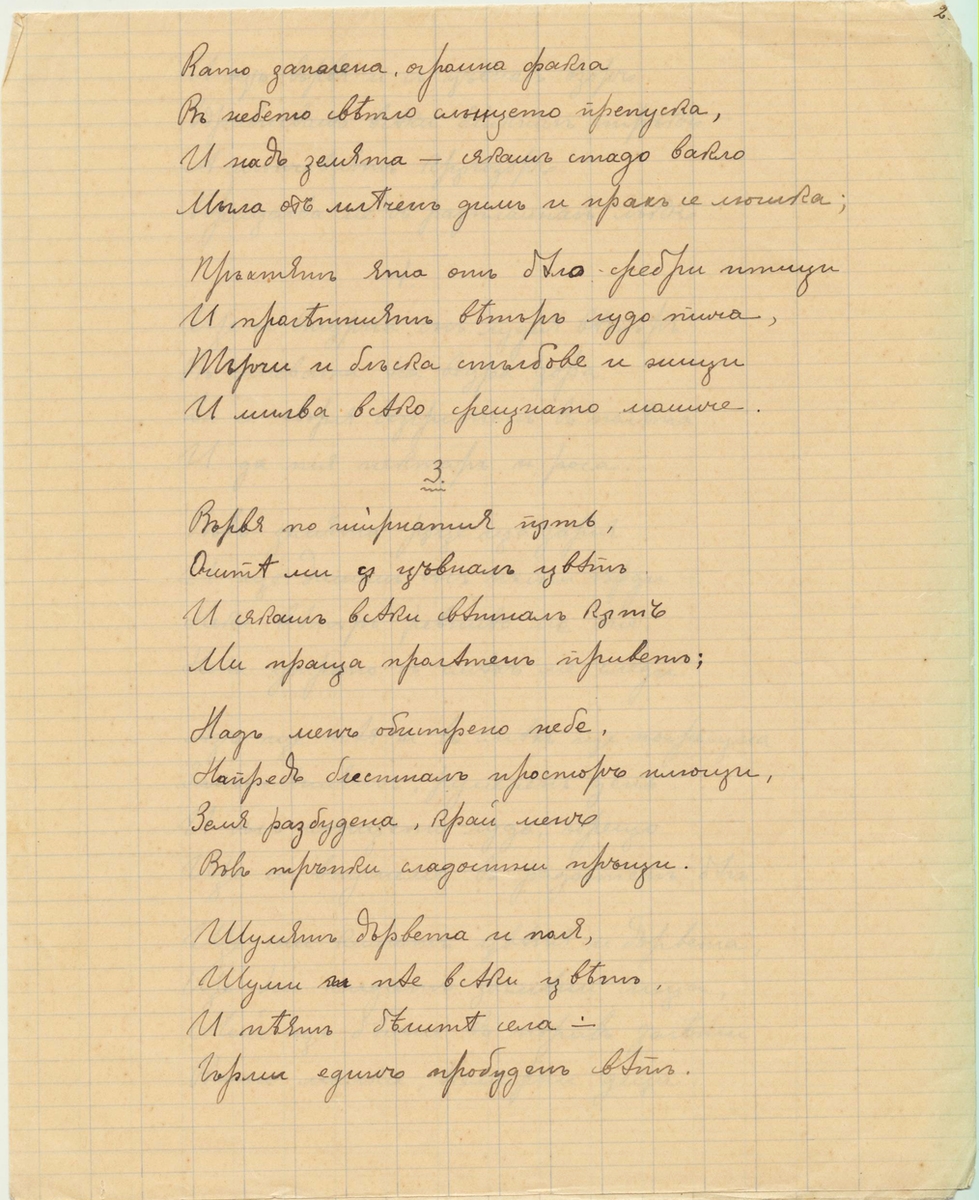 2.
Като запалена, огромна факла
Въ небето свѣтло слънцето препуска,
И надъ земята — сякашъ стадо вакло
Мъгла отъ млѣченъ димъ и прахъ се люшка;
Пръхтятъ ята отъ бѣло-сребри птици
И пролѣтниятъ вѣтъръ лудо тича,
Търчи и блъска стълбове и жици
И милва всѣко срещнато момиче.
3.
Вървя по ширнатия пѫть,
Очитѣ ми сѫ цъвналъ цвѣтъ
И сякашъ всѣки свѣтналъ кѫтъ
Ми праща пролѣтенъ приветъ;
Надъ менъ обистрено небе,
Напредъ блестналъ просторъ плющи,
Земя разбудена, край менъ
Въвъ тръпки сладостни пръщи.
Шумятъ дървета и поля,
Шуми и пѣе всѣки цвѣтъ,
И пѣятъ бѣлитѣ села —
Гърми единъ пробуденъ свѣтъ.